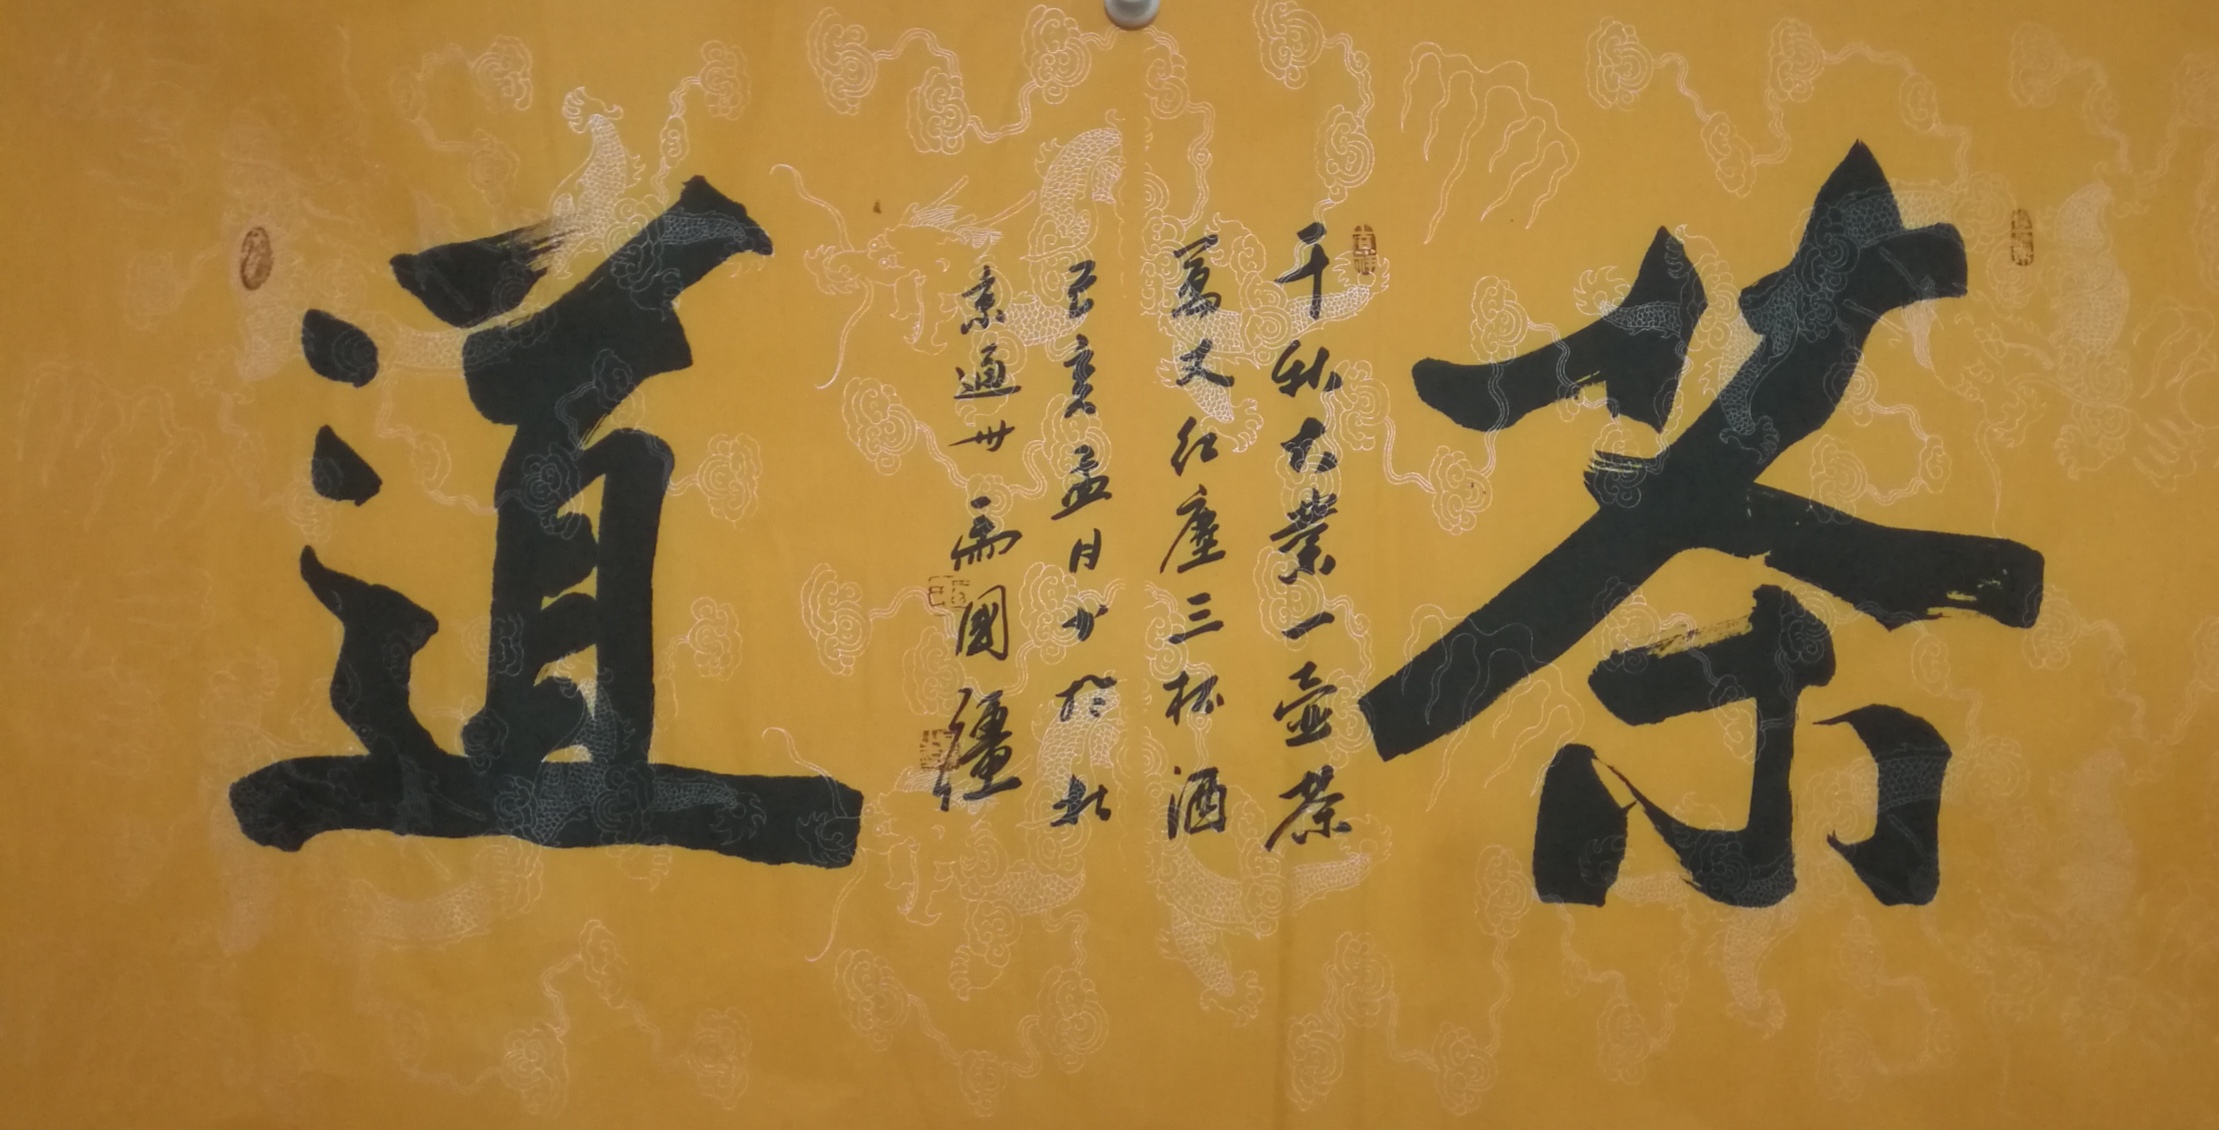 茶
千秋大業一壺茶
萬丈红塵三杯酒
己亥孟月书於北
京通州 馬國疆
道